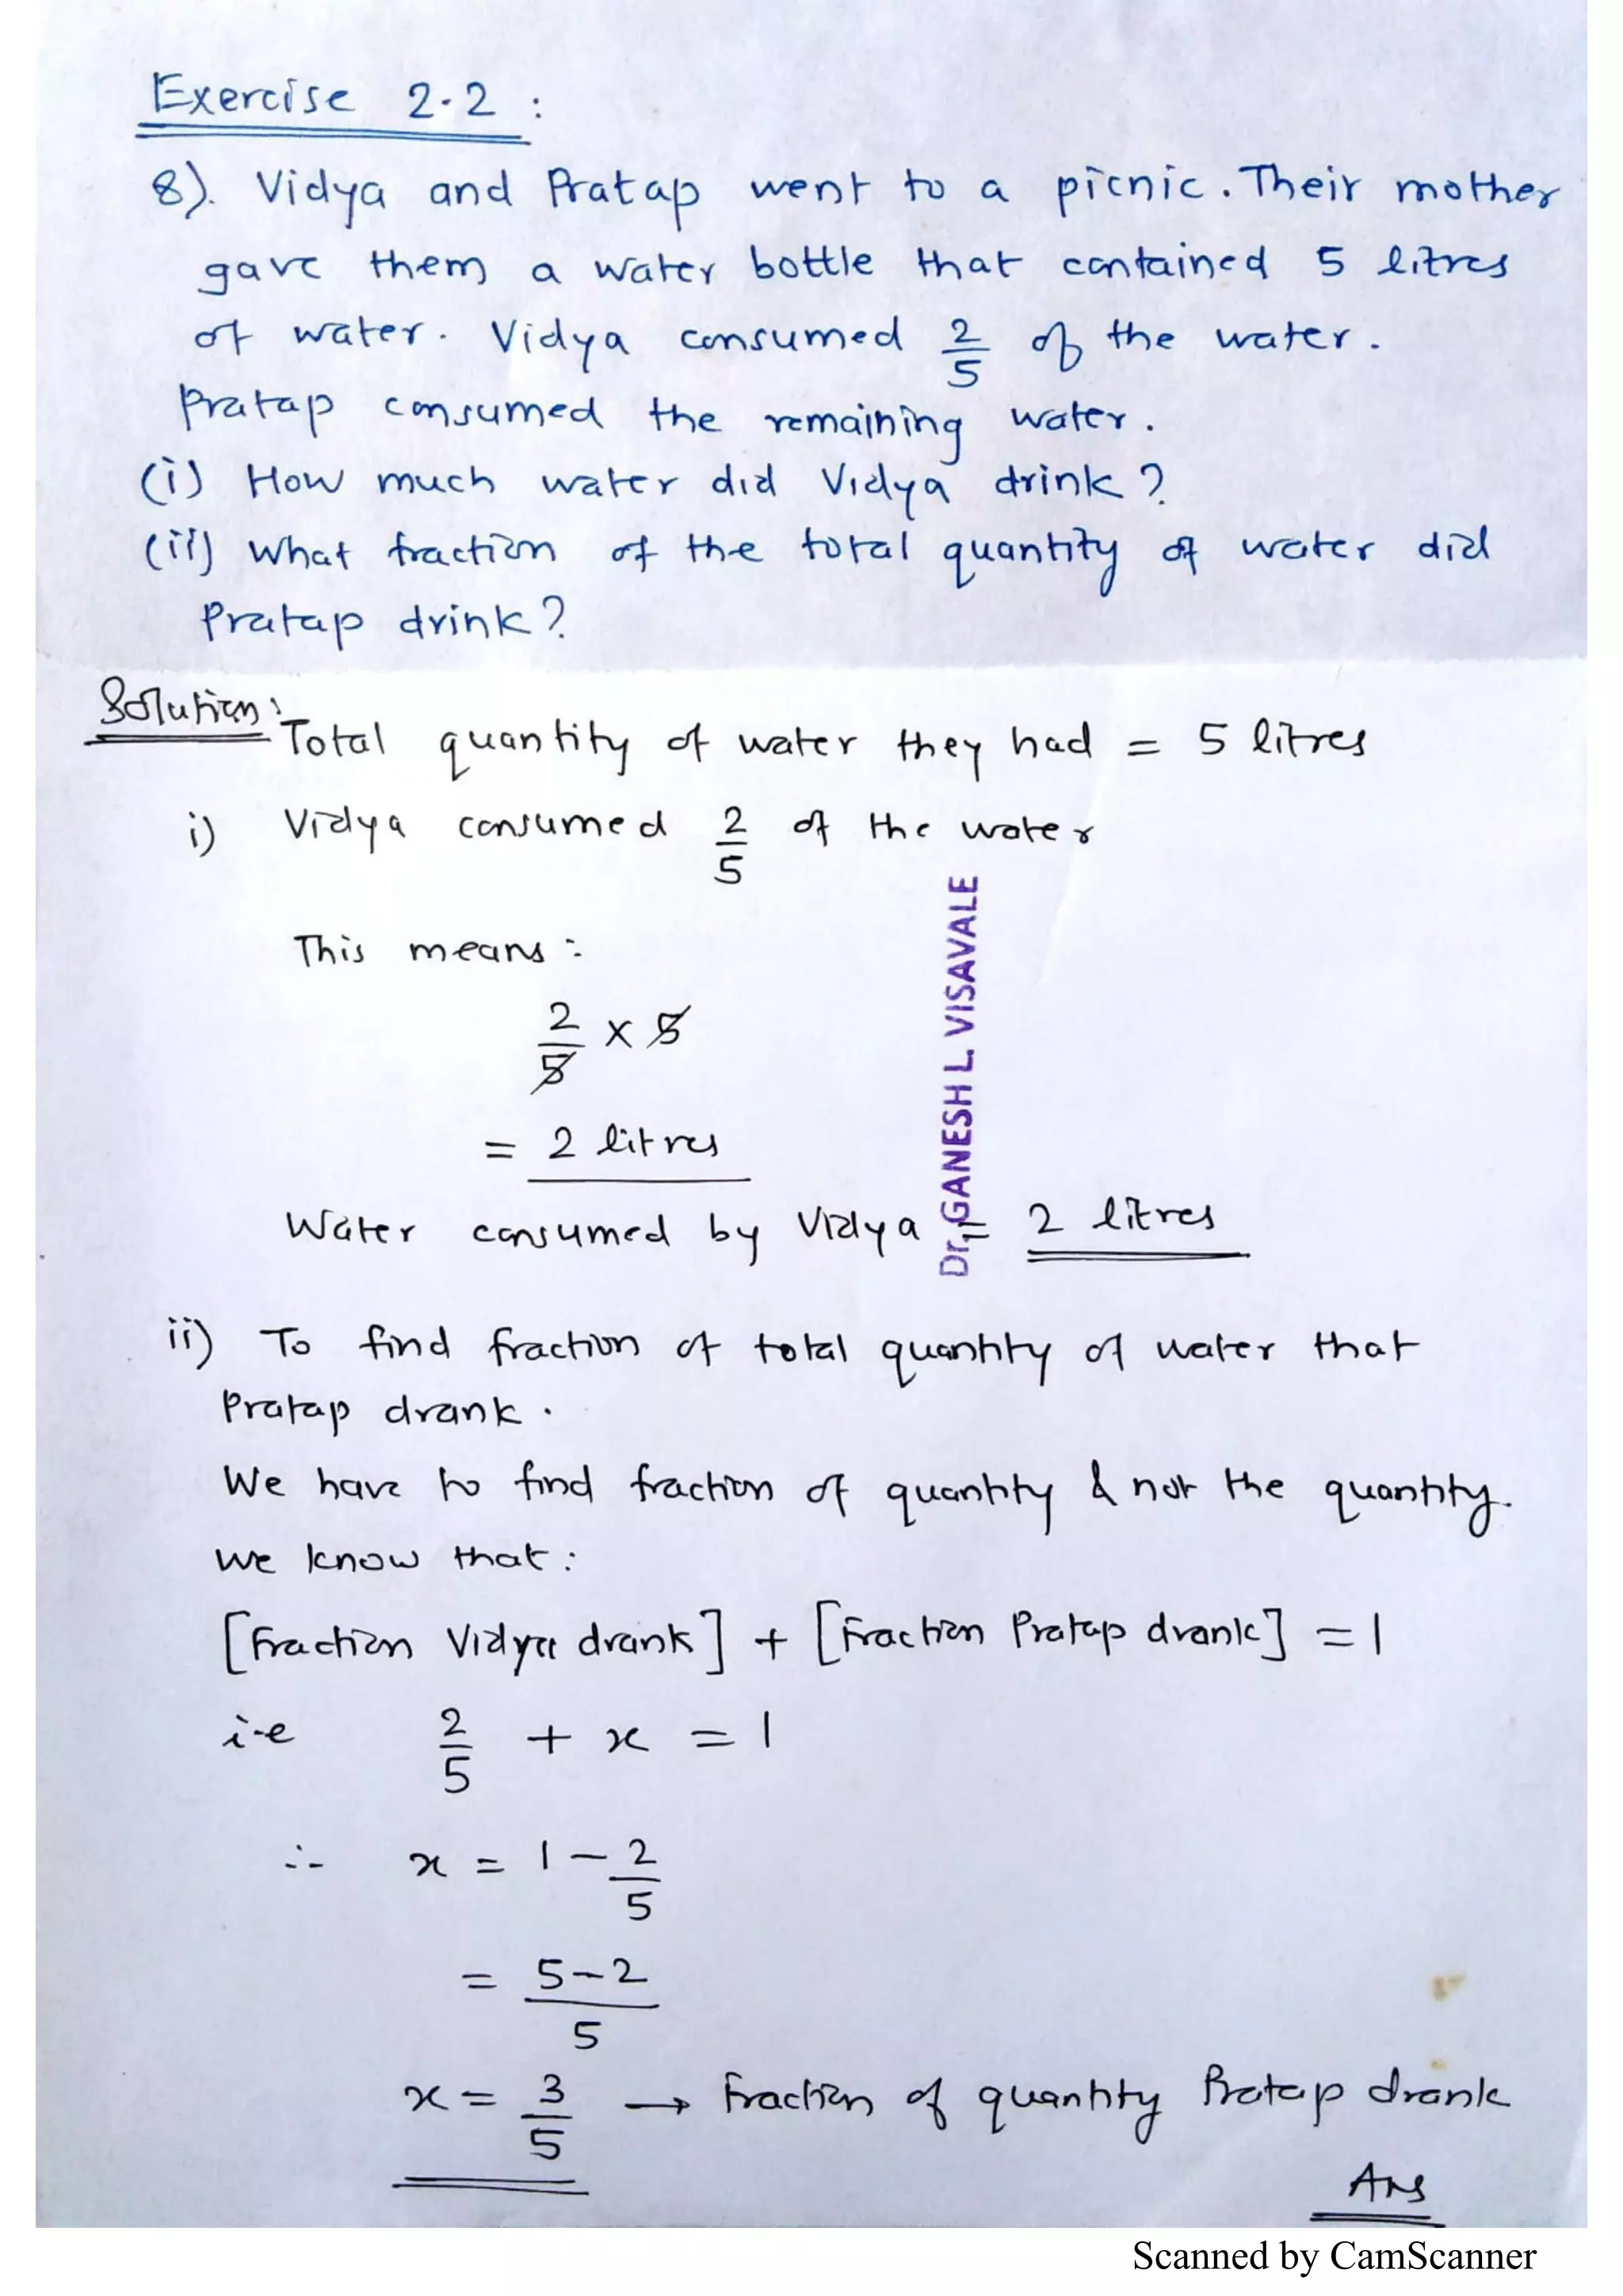 Exercise 2.2 :
8). Vidya and Pratap went to a picnic. Their mother
gave them a water bottle that contained 5 litres
of water. Vidya consumed 2/5 of the water.
Pratap consumed the remaining water.
(i) How much water did Vidya drink?
(ii) What fraction of the total quantity of water did
Pratap drink?
Solution:
Total quantity of water they had = 5 litres
i) Vidya consumed 2/5 of the water
This means :
2/5 x 5
= 2 litres
Water consumed by Vidya = 2 litres
Dr. GANESH L. VISAVALE
ii) To find fraction of total quantity of water that
Pratap drank.
We have to find fraction of quantity & not the quantity.
We know that :
[Fraction Vidya drank] + [Fraction Pratap drank] = 1
i.e 2/5 + x = 1
∴ x = 1 - 2/5
= 5-2/5
x = 3/5 → Fraction of quantity Pratap drank
Ans
Scanned by CamScanner